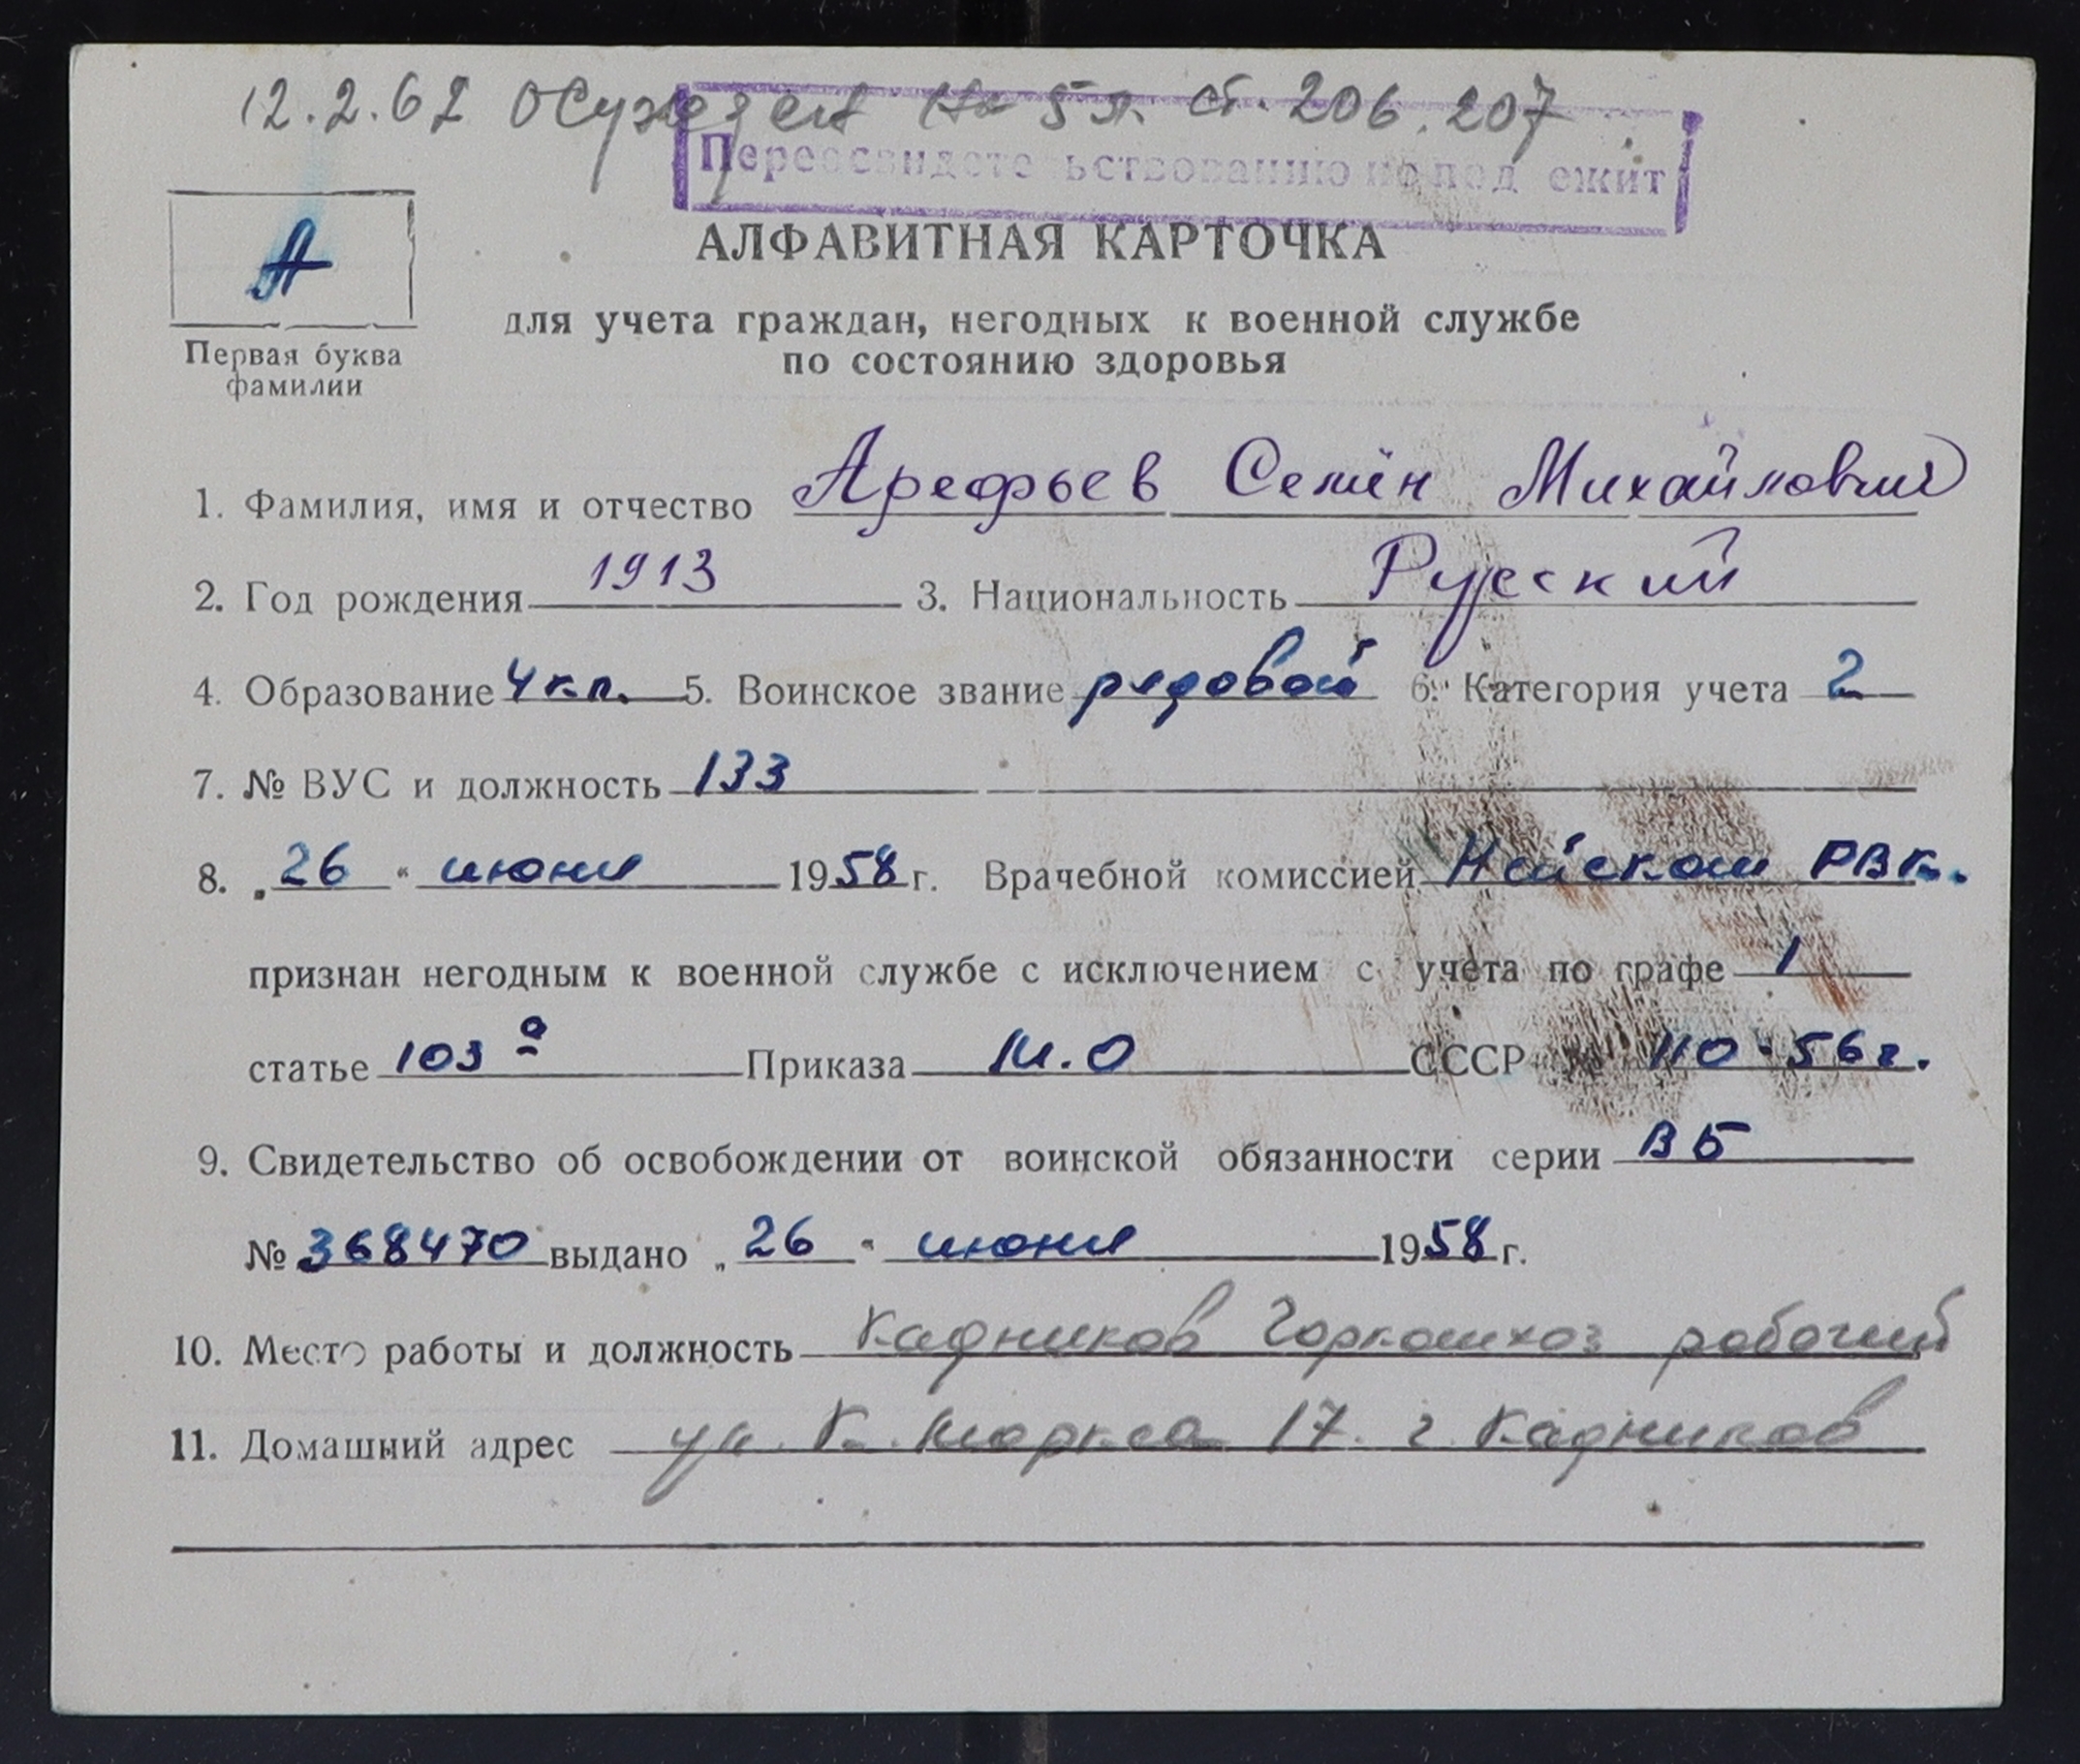 12.2.62 Осужден на 5 л. ст. 206, 207
Переосвидетельствованию не подлежит
А
Первая буква
фамилии
АЛФАВИТНАЯ КАРТОЧКА
для учета граждан, негодных к военной службе
по состоянию здоровья
1. Фамилия, имя и отчество Арефьев Семён Михайлович
2. Год рождения 1913 3. Национальность Русский
4. Образование 4 кл. 5. Воинское звание рядовой 6. Категория учета 2
7. № ВУС и должность 133
8. „26“ июня 1958 г. Врачебной комиссией РВК.
признан негодным к военной службе с исключением с учета по графе 1
статье 103 а Приказа М.О СССР № 110-56 г.
9. Свидетельство об освобождении от воинской обязанности серии ВБ
№ 368470 выдано „26“ июня 1958 г.
10. Место работы и должность Кадников Горкомхоз рабочий
11. Домашний адрес ул. К. Маркса 17. г. Кадников